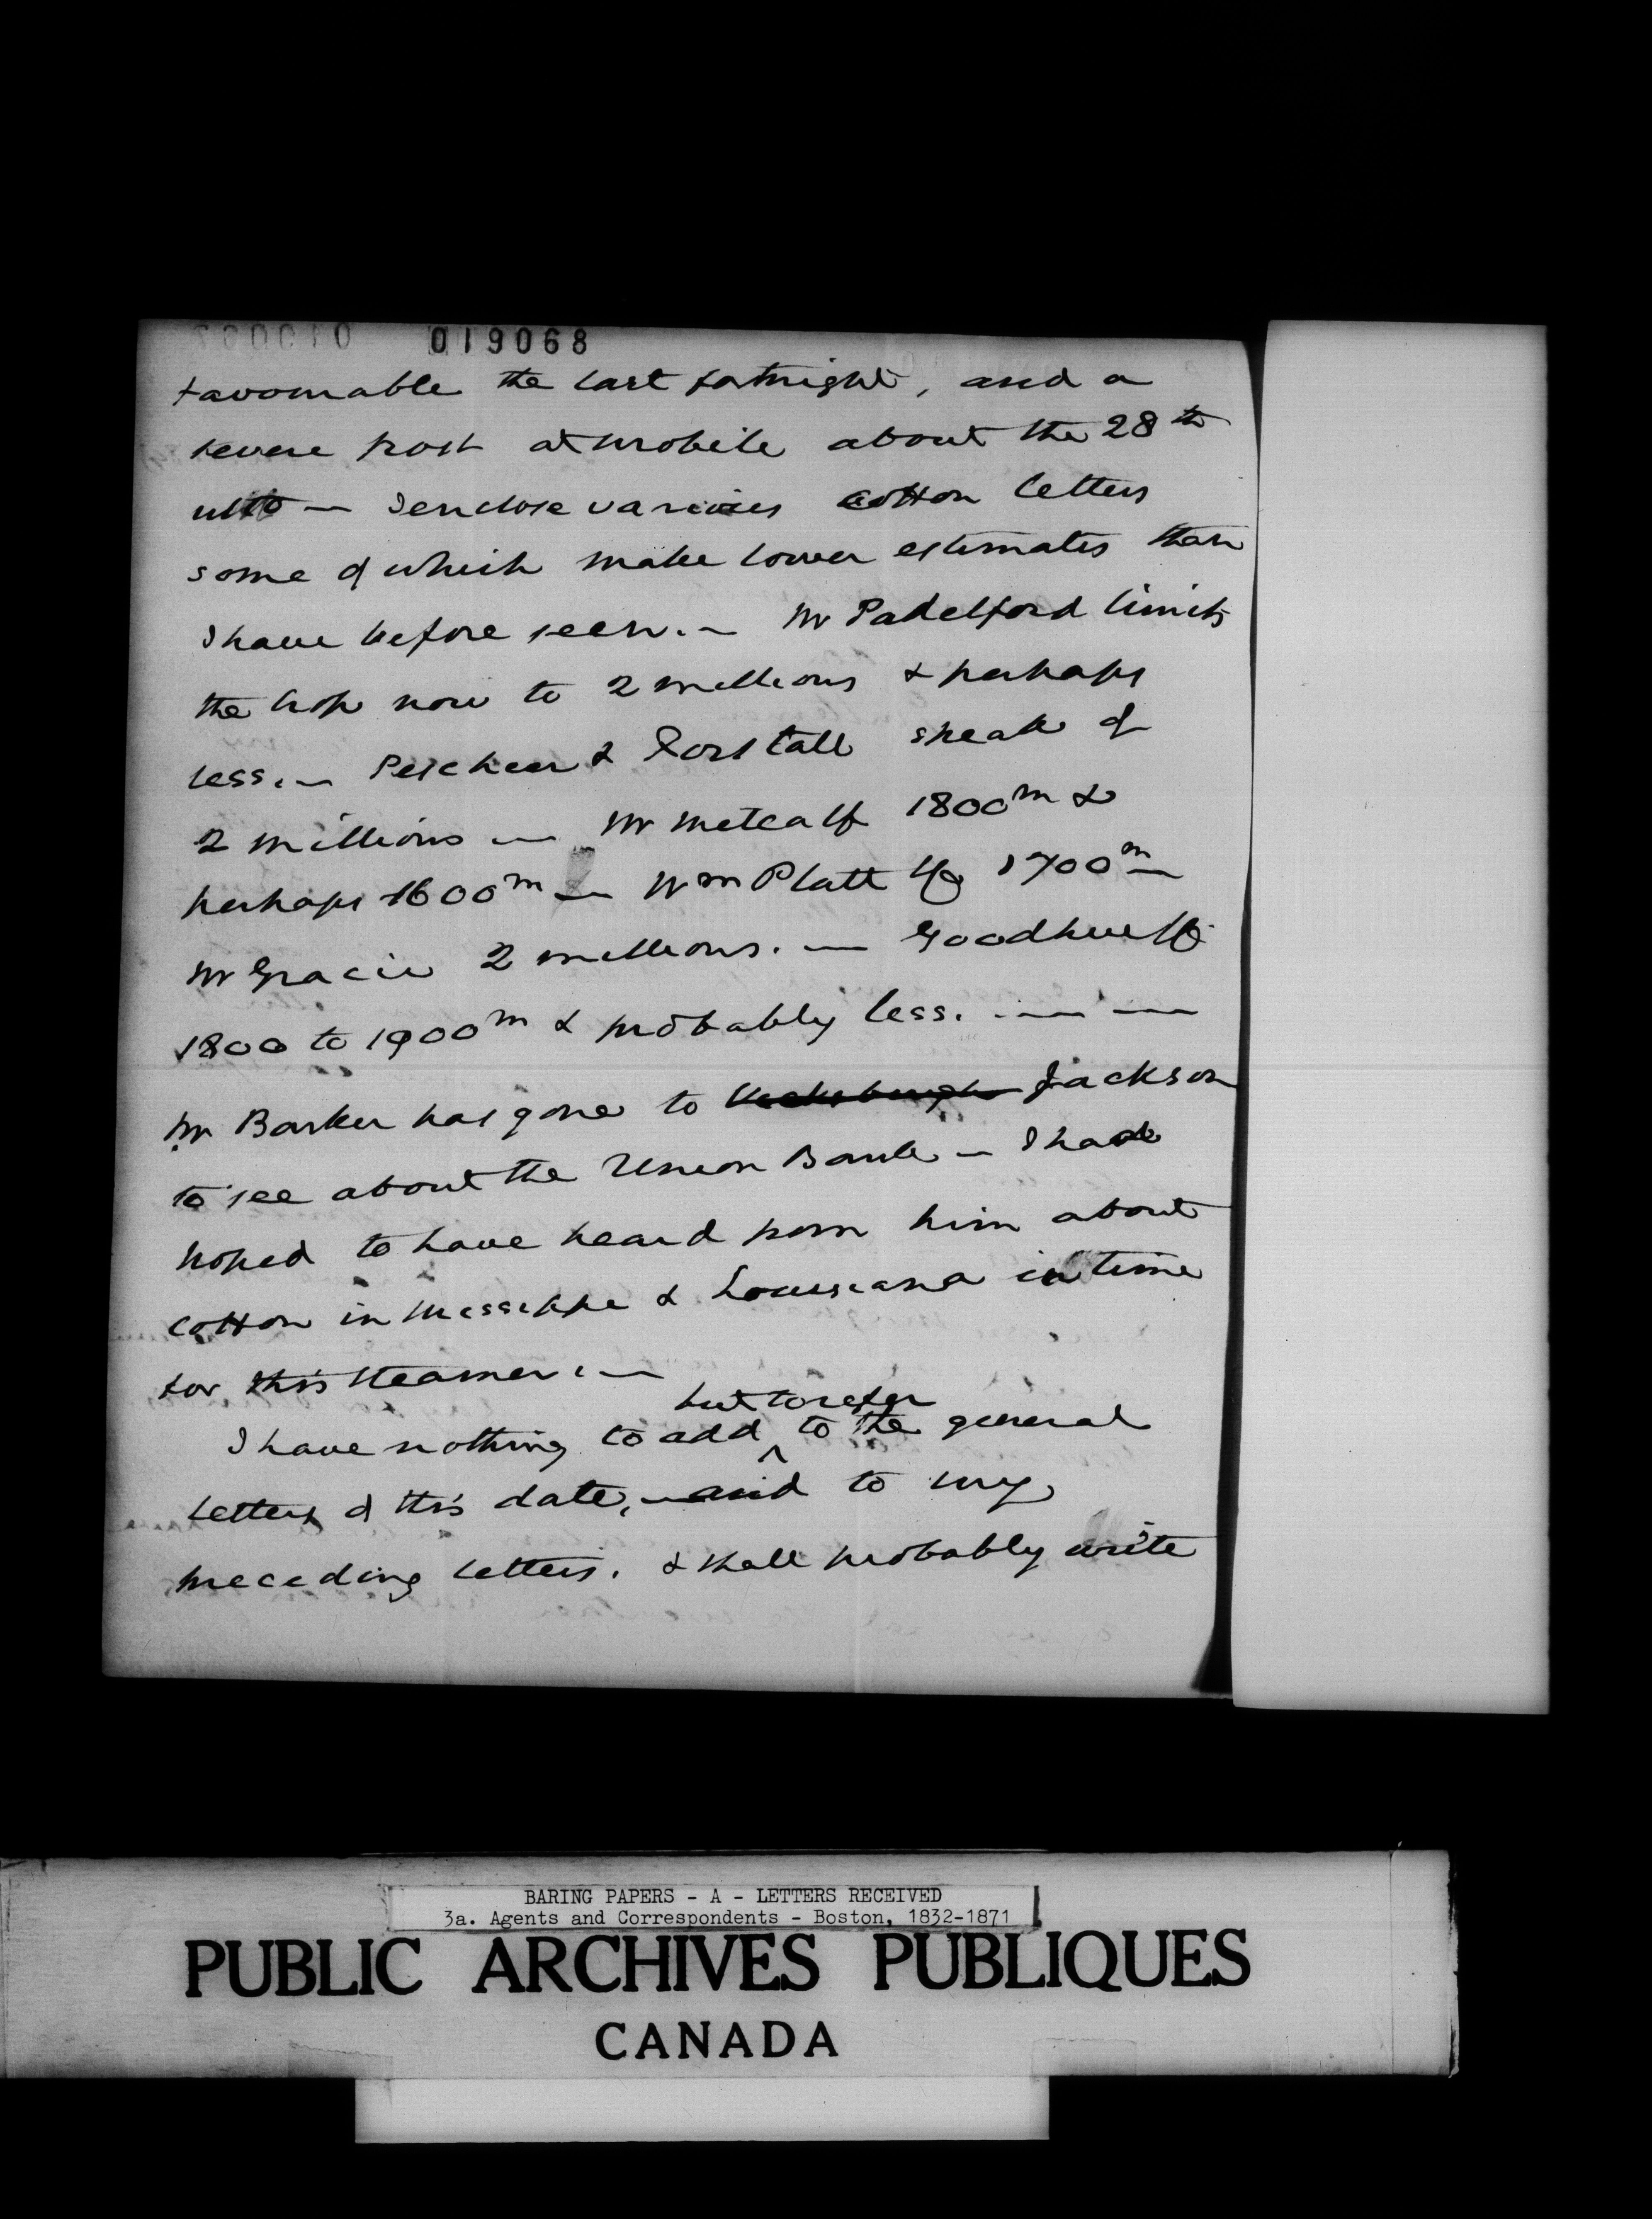 019068
favourable the last fortnight, and a
severe frost at Mobile about the 28th
ulto — I enclose various cotton letters
some of which make lower estimates than
I have before seen. — Mr Padelford limits
the crop now to 2 millions & perhaps
less. — & Forstall speak of
2 millions — Mr Metcalf 1800m &
perhaps 1600m — Wm Platt & Co 1700m —
Mr Gracie 2 millions. — Goodhue & Co
1800 to 1900m & probably less. — —
Mr Barker has gone to Vicksburgh Jackson
to see about the Union Bank — I had
hoped to have heard from him about
cotton in Mississippi & Louisiana in time
for this steamer. —
but to refer
I have nothing to add ^ to the general
letters of this date, — and to my
preceding letters. & shall probably write
BARING PAPERS - A - LETTERS RECEIVED
3a. Agents and Correspondents - Boston, 1832-1871
PUBLIC ARCHIVES PUBLIQUES
CANADA